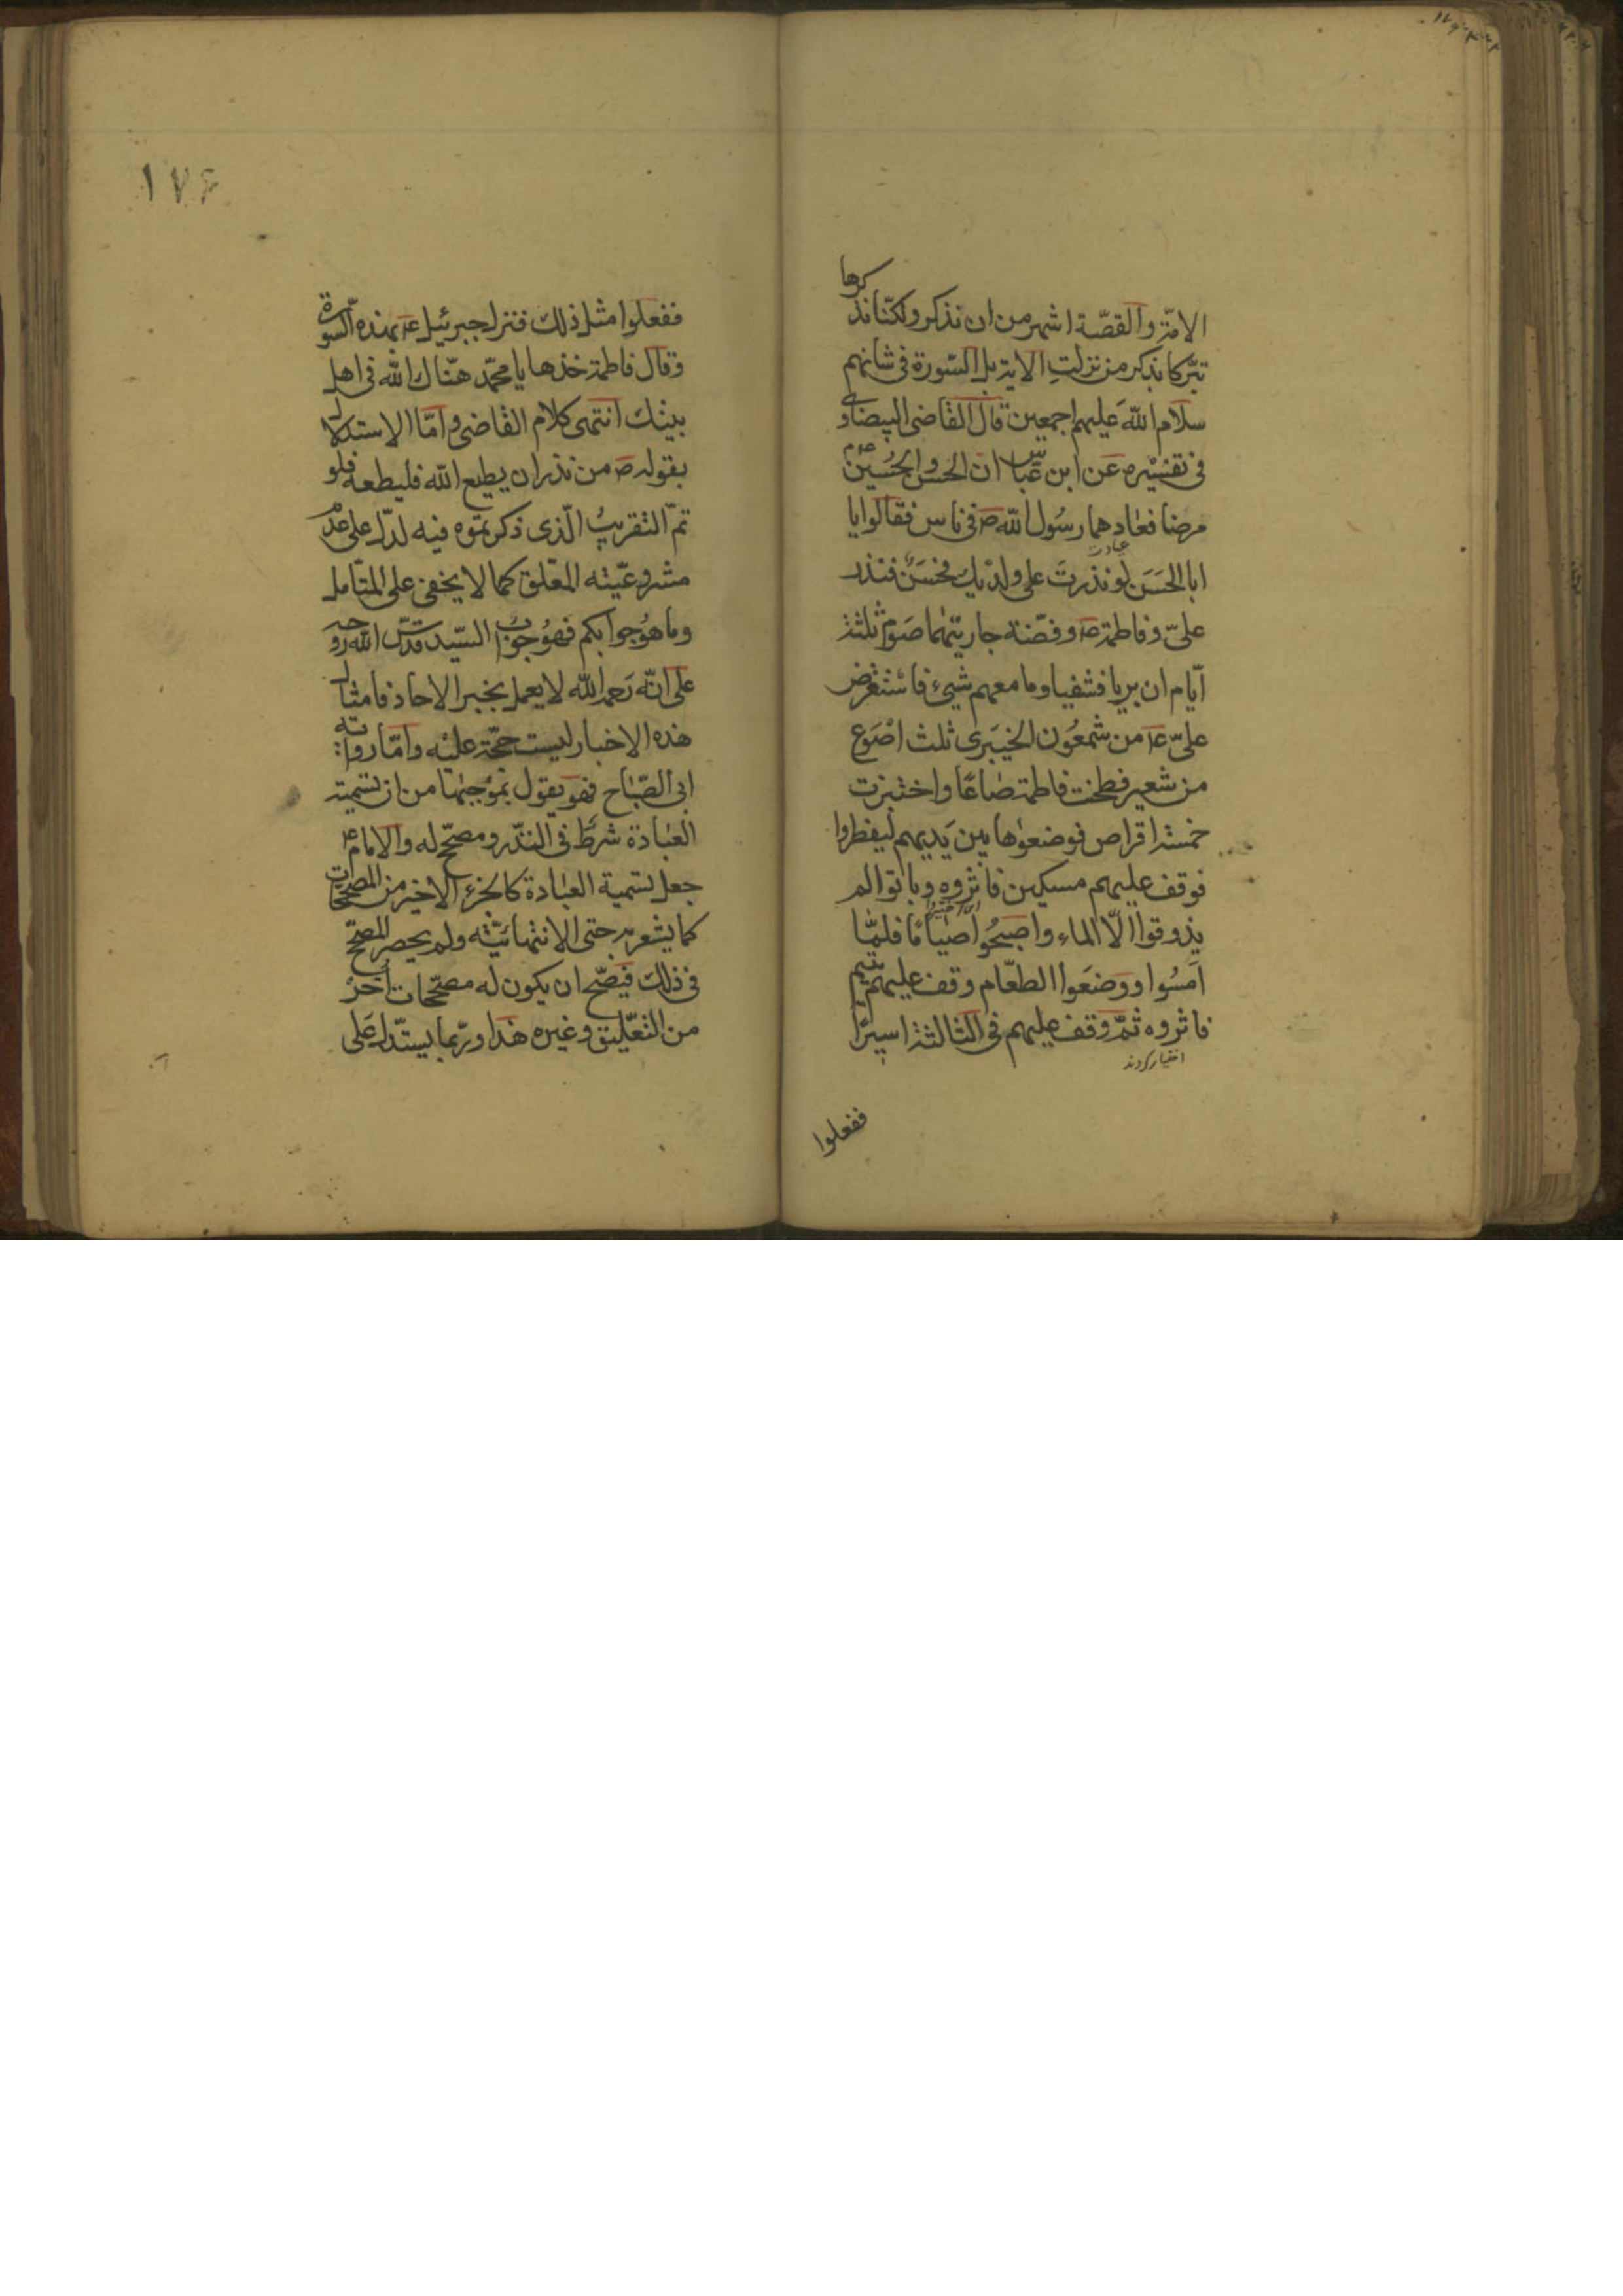 الامّة والقصّة اشهر من ان تذكر ولكنّا نذكرها
تبرّكا بذكر من نزلتِ الاية بل السّورة فى شانهم
سلام اللّه عَليهم اجمعين قال القاضى البيضاوى
فى تفسيره عَن ابن عبّاس انّ الحسن والحُسين
مرضا فعٰادهما رسُول اللّه ص فى ناس فقالوا يا
ابا الحَسَن لو نذرتَ على ولدَيك فنذر
علىّ وفاطمة وفضّة جارية لهما صَوم ثلثة
ايّام ان بريا فشفيا وما معهم شيئ فاستقرض
علىّ ع من شمعُون الخيبَرى ثلث اصْوَع
من شعير فطحنت فاطمة صٰاعًا واختبزت
خمسة اقراص فوضعوٰها بين يَديهم ليفطروا
فوقف عليهم مسكين فاثروه وباتوا لم
يذوقوا الّا الماء واصبحُوا صيٰامًا فلمّا
امَسُوا ووَضعَوا الطعّام وقف عليهم يتيم
فاثروه ثمّ وقف عليهم فى الثالثة اسيرًا
اختيار كردند
ففعلوا
١٧۶
ففعلوا مثل ذلك فنزل جبرئيل ع بهذه السّورة
وقال خذها يا محمّد هنّاك اللّه فى اهل
بيتك انتهى كلام القاضى وامّا الاستدلال
بقوله ص من نذر ان يطيع اللّه فليطعه فلو
تمّ التقريبُ الّذى ذكرتموه فيه لدلّ على عدم
مشروعيّته المعّلق كما لا يخفى على المتّامل
وما هوُ جوابكم فهوُ جوابُ السّيد قدّس اللّه روحه
على انّه رَحمه اللّه لا يعمل بخبر الاحاد فامثال
هذه الاخبار ليست حجّة عليْه وامّا رواية
ابى الصّبٰاح فهو يقول بمُوجبهٰا من ان تسمية
العبٰادة شرَط فى النّذر ومصحّح له والامام ع
جعل تسمية العبٰادة كالجزء الاخير من المصحّحات
كما يشعر به حتى الانتهائيّته ولم يحصر المصّحح
فى ذلك فيَصّح ان يكون له مصحّحات اُخرْ
من التعّليق وغيره هذا وربّما يستّدل عَلى